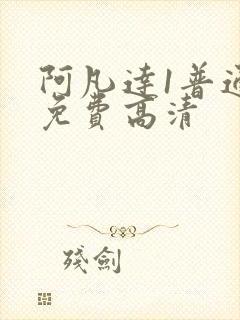 阿凡達1普通
免費高清
殘劍